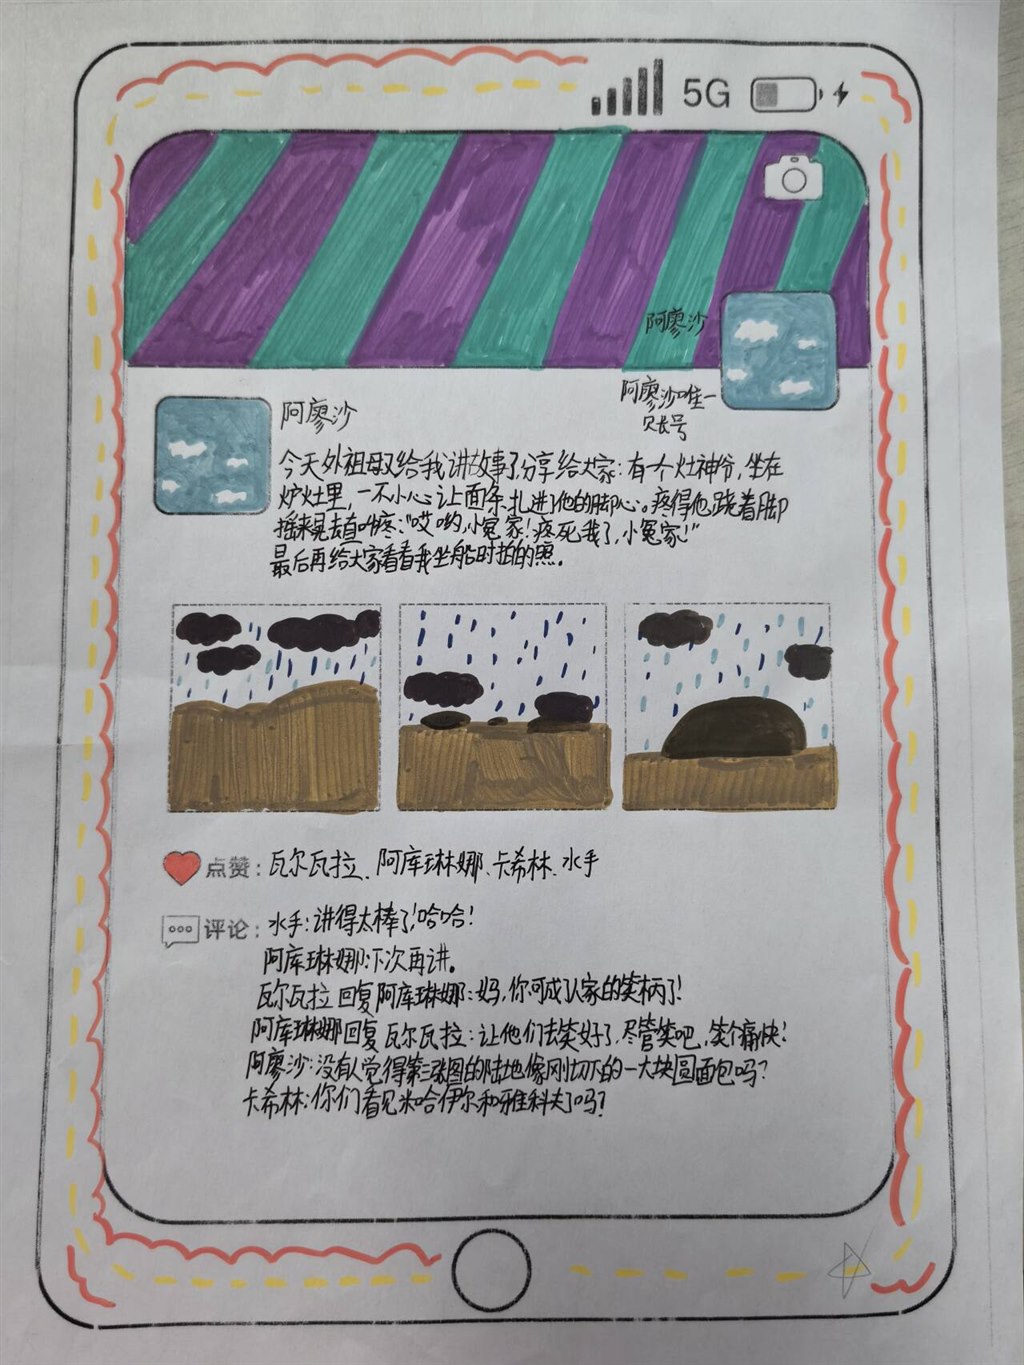 5G
阿廖沙
阿廖沙唯一
账号
阿廖沙
今天外祖母又给我讲故事了,分享给大家:有一个灶神爷,坐在
炉灶里,一不小心让面条扎进了他的脚心。疼得他,跷着脚
摇来晃去直叫疼:“哎哟,小冤家!疼死我了,小冤家!”
最后再给大家看看我坐船时拍的照。
点赞:瓦尔瓦拉、阿库琳娜、卡希林、水手
评论:水手:讲得太棒了!哈哈!
阿库琳娜:下次再讲。
瓦尔瓦拉回复阿库琳娜:妈,你可成了人家的笑柄了!
阿库琳娜回复瓦尔瓦拉:让他们去笑好了,尽管笑吧,笑个痛快!
阿廖沙:没有人觉得第三张图的陆地像刚切下的一大块圆面包吗?
卡希林:你们看见米哈伊尔和雅科夫了吗?